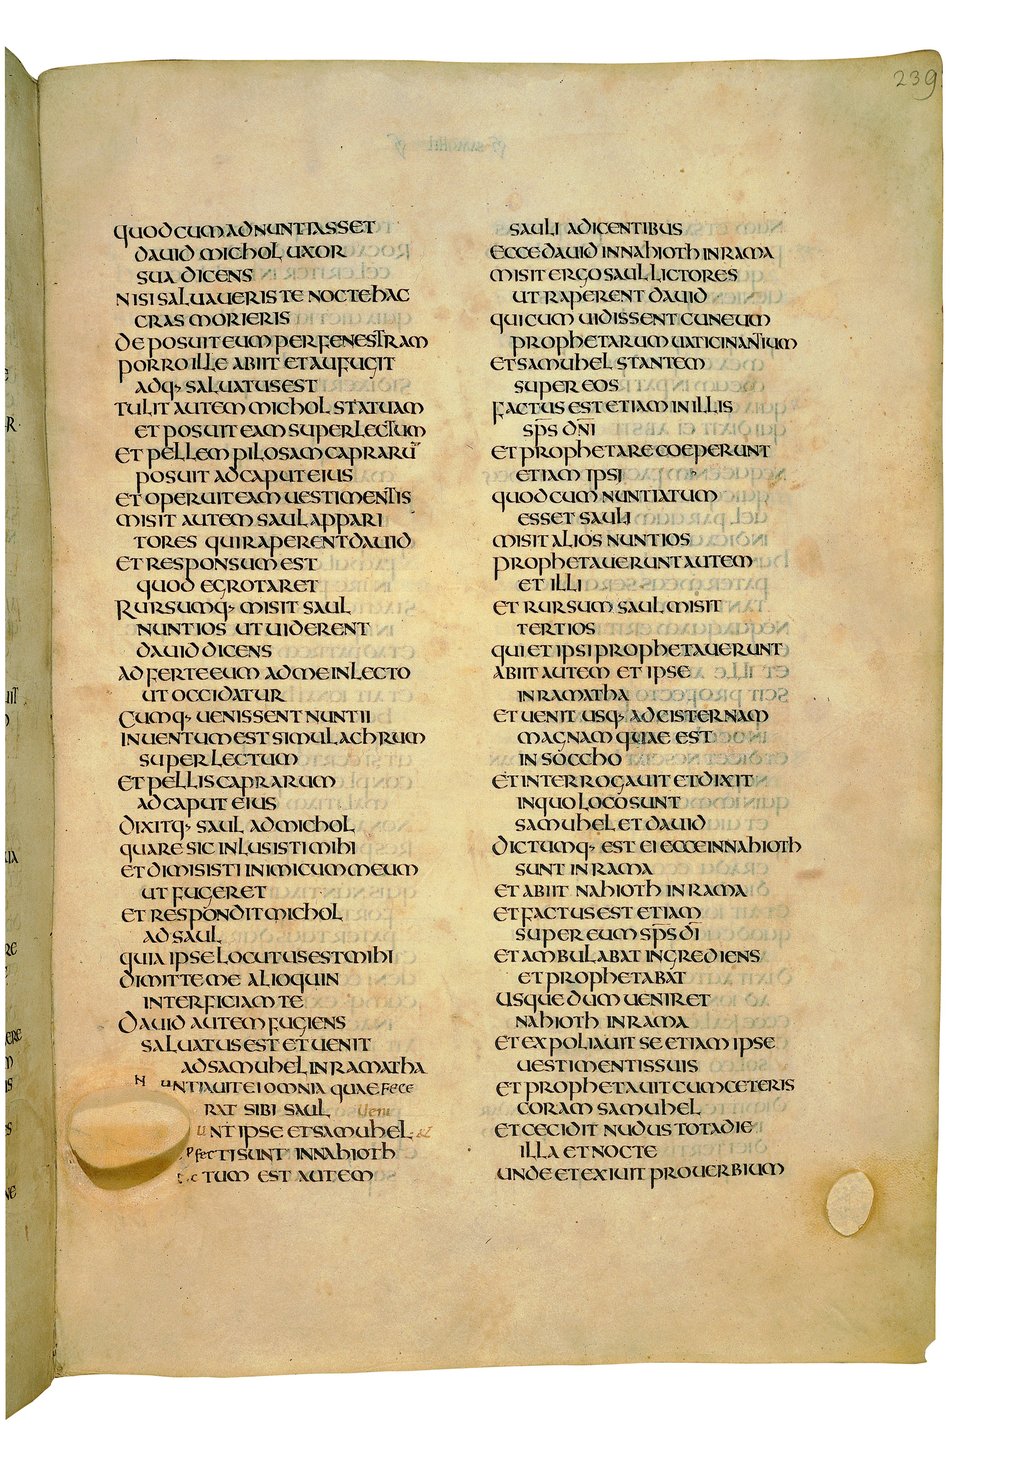 239
quod cum adnuntiasset
dauid michol uxor
sua dicens
nisi saluaueris te nocte hac
cras morieris
deposuit eum per fenestram
porro ille abiit et aufugit
adq; saluatus est
tulit autem michol statuam
et posuit eam super lectum
et pellem pilosam caprarū
posuit ad caput eius
et operuit eam uestimentis
misit autem saul appari
tores qui raperent dauid
et responsum est
quod egrotaret
Rursumq; misit saul
nuntios ut uiderent
dauid dicens
adferte eum ad me in lecto
ut occidatur
Cumq; uenissent nuntii
inuentum est simulachrum
super lectum
et pellis caprarum
ad caput eius
dixitq; saul ad michol
quare sic inlusisti mihi
et dimisisti inimicum meum
ut fugeret
et respondit michol
ad saul
quia ipse locutus est mihi
dimitte me alioquin
interficiam te
Dauid autem fugiens
saluatus est et uenit
ad samuhel in ramatha
N untiauit ei omnia quae fece
rat sibi saul
unt ipse et samuhel et
pfecti sunt in nahioth
tum est autem
sauli a dicentibus
ecce dauid in nahioth in rama
misit ergo saul lictores
ut raperent dauid
qui cum uidissent cuneum
prophetarum uaticinantium
et samuhel stantem
super eos
factus est etiam in illis
sp̄s dn̄i
et prophetare coeperunt
etiam ipsi
quod cum nuntiatum
esset sauli
misit alios nuntios
prophetauerunt autem
et illi
et rursum saul misit
tertios
qui et ipsi prophetauerunt
abiit autem et ipse
in ramatha
et uenit usq; ad cisternam
magnam quae est
in soccho
et interrogauit et dixit
in quo loco sunt
samuhel et dauid
dictumq; est ei ecce in nahioth
sunt in rama
et abiit nahioth in rama
et factus est etiam
super eum sp̄s dī
et ambulabat ingrediens
et prophetabat
usque dum ueniret
nahioth in rama
et expoliauit se etiam ipse
uestimentis suis
et prophetauit cum ceteris
coram samuhel
et cecidit nudus tota die
illa et nocte
unde et exiuit prouerbium